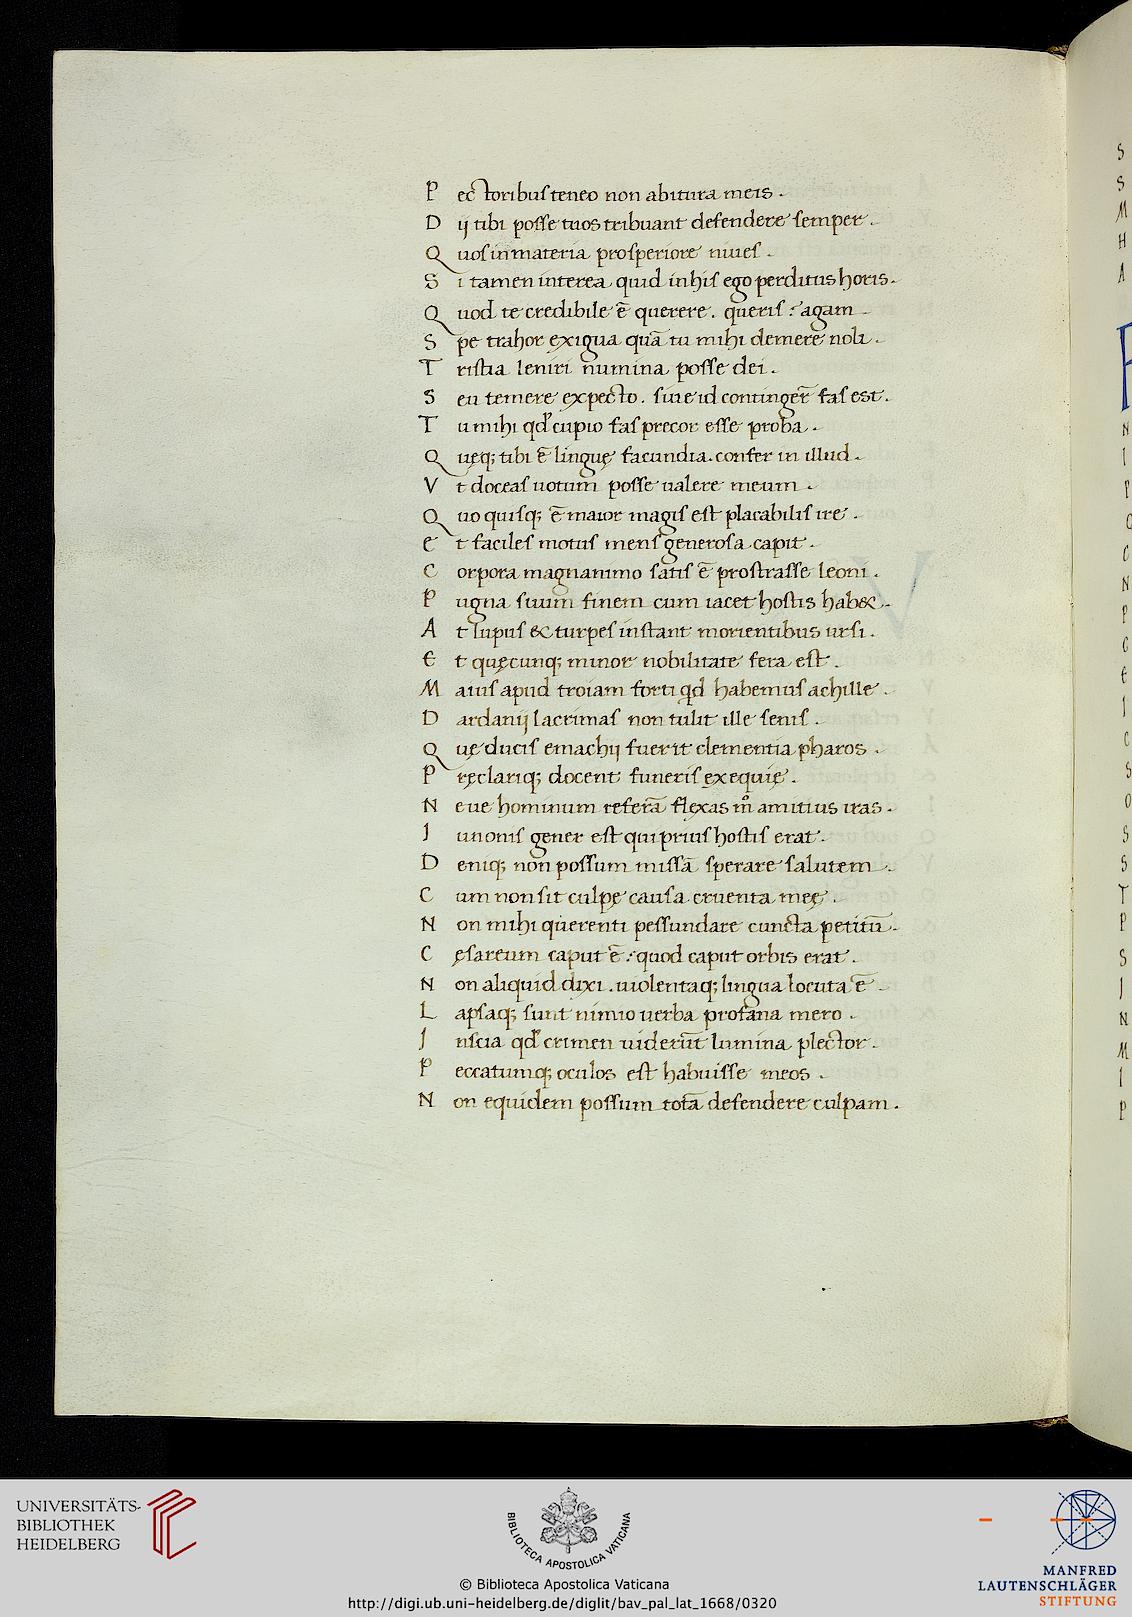 P ectoribus teneo non abitura meis .
D ij tibi posse tuos tribuant defendere semper .
Q uos in materia prosperiore niues .
S i tamen interea quid in his ego perditus horis .
Q uod te credibile ē querere . queris : agam .
S pe trahor exigua quā tu mihi demere noli .
T ristia leniri numina posse dei .
S eu temere expecto . siue id contingēt fas est .
T u mihi qđ cupio fas precor esse proba .
Q uęq; tibi ē linguę facundia . confer in illud .
V t doceas uotum posse ualere meum .
Q uo quisq; ē maior magis est placabilis ire .
E t faciles motus mens generosa capit .
C orpora magnanimo satis ē prostrasse leoni .
P ugna suum finem cum iacet hostis hab& .
A t lupus & turpes instant morientibus ursi .
E t quęcunq; minor nobilitate fera est .
M aius apud troiam forti qd habemus achille .
D ardanij lacrimas non tulit ille senis .
Q uę ducis emachij fuerit clementia pharos .
P ręclariq; docent funeris exequię .
N eue hominum referā flexas mō amitius iras .
J unonis gener est qui prius hostis erat .
D eniq; non possum missā sperare salutem .
C um non sit culpę causa cruenta męę .
N on mihi querenti pessundare cuncta petitū .
C ęsareum caput ē : quod caput orbis erat .
N on aliquid dixi . uiolentaq; lingua locuta ē .
L apsaq; sunt nimio uerba profana mero .
J nscia qđ crimen uiderūt lumina plector .
P eccatumq; oculos est habuisse meos .
N on equidem possum totā defendere culpam .
S
S
M
H
A
N
I
P
C
C
N
P
C
E
I
C
S
O
S
S
T
P
S
J
N
M
I
P
UNIVERSITÄTS-
BIBLIOTHEK
HEIDELBERG
BIBLIOTECA APOSTOLICA VATICANA
MANFRED
LAUTENSCHLÄGER
STIFTUNG
© Biblioteca Apostolica Vaticana
http://digi.ub.uni-heidelberg.de/diglit/bav_pal_lat_1668/0320